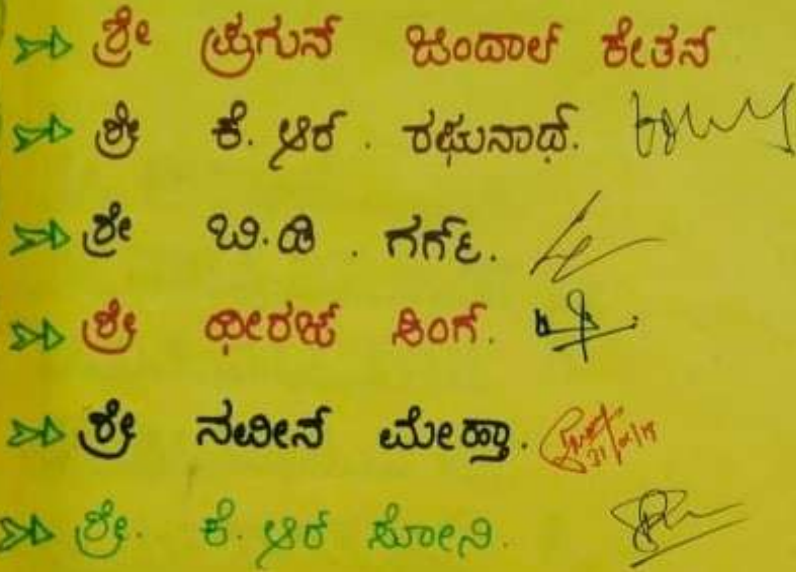 ಶ್ರೀ ಪ್ರಗುನ್ ಜಿಂದಾಲ್ ಕೇತನ್
ಶ್ರೀ ಕೆ. ಆರ್ . ರಘುನಾಥ್.
ಶ್ರೀ ಬಿ.ಡಿ . ಗರ್ಗ್.
ಶ್ರೀ ಧೀರಜ್ ಸಿಂಗ್.
ಶ್ರೀ ನವೀನ್ ಮೇಹ್ತಾ.
ಶ್ರೀ. ಕೆ. ಆರ್ ಸೋನಿ.